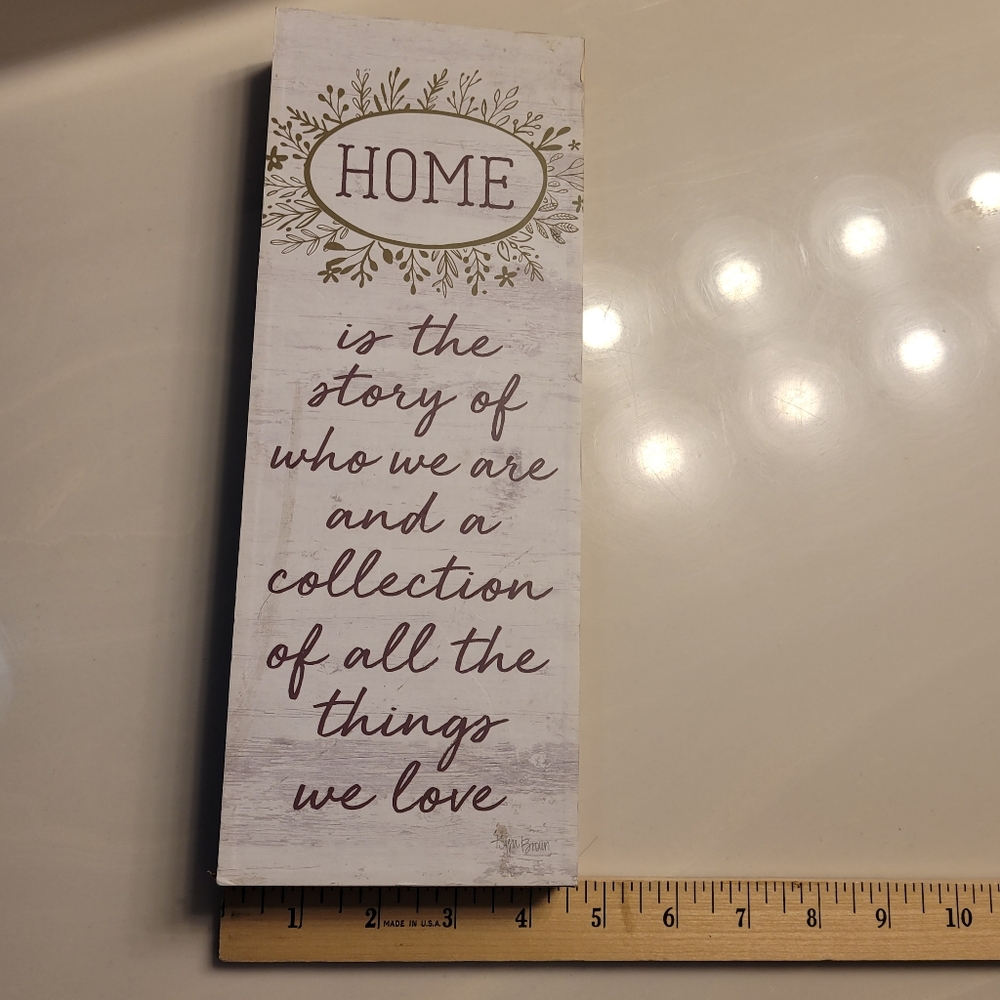 HOME
is the
story of
who we are
and a
collection
of all the
things
we love
Brown
1 2 MADE IN U.S.A. 3 4 5 6 7 8 9 10